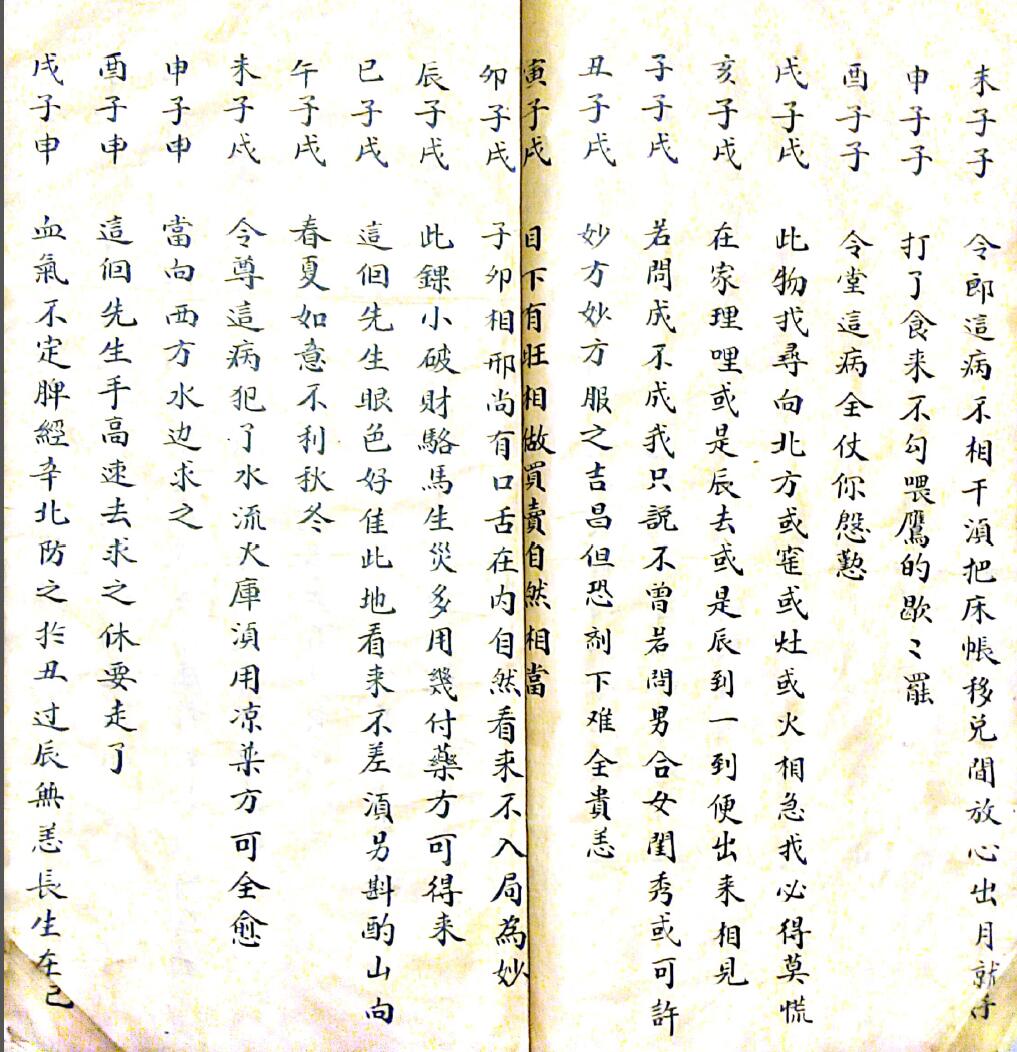 未子子 令郎這病不相干湏把床帳移兑間放心出月就好
申子子 打了食来不勾喂鷹的歇〻罷
酉子子 令堂這病全仗你慇懃
戌子戌 此物找尋向北方或窑或灶或火相急我必得莫慌
亥子戌 在家理哩或是辰去或是辰到一到便出来相見
子子戌 若問成不成我只説不曾若問男合女閨秀或可許
丑子戌 妙方妙方服之吉昌但恐剤下难全貴恙
寅子戌 目下有旺相做買賣自然相當
卯子戌 子卯相邢尚有口舌在内自然看来不入局為妙
辰子戌 此錁小破財駱馬生災多用幾付藥方可得来
巳子戌 這個先生眼色好佳此地看来不差湏另斟酌山向
午子戌 春夏如意不利秋冬
未子戌 令尊這病犯了水流火庫湏用凉薬方可全愈
申子申 當向西方水边求之
酉子申 這個先生手高速去求之休要走了
戌子申 血氣不定脾經辛北防之於丑过辰無恙長生在己